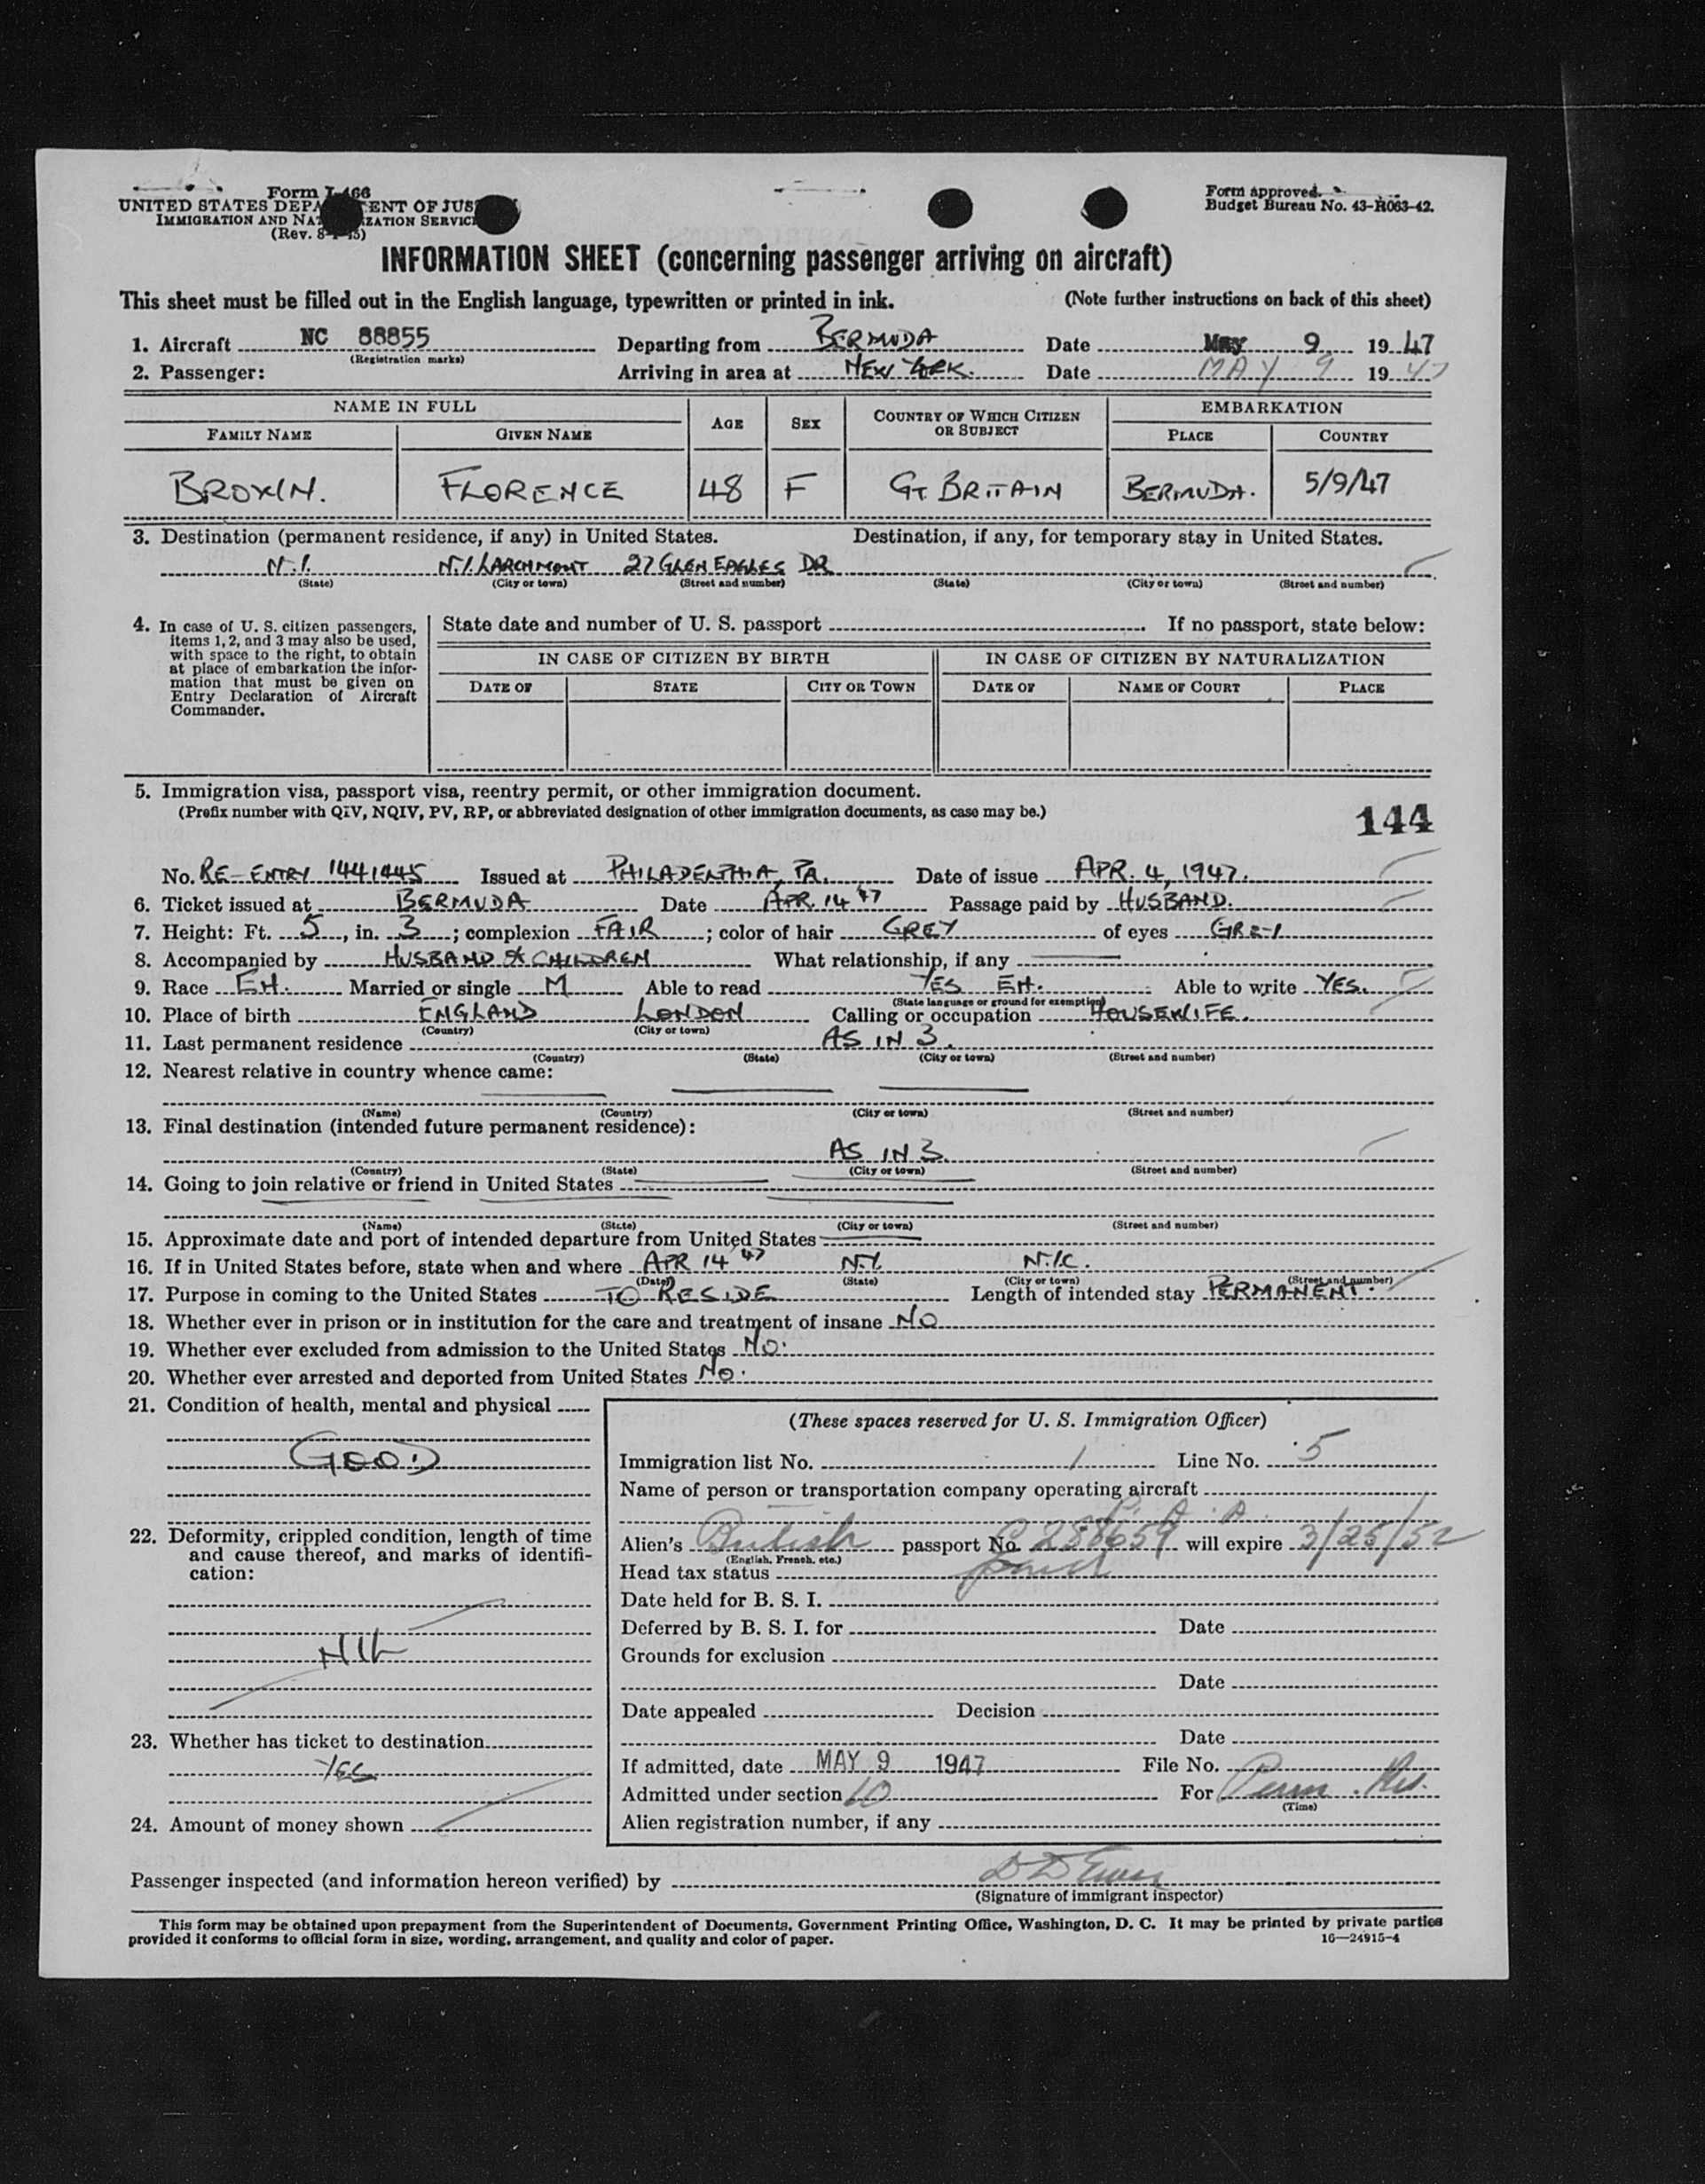 Form I-466
UNITED STATES DEPARTMENT OF JUSTICE
IMMIGRATION AND NATURALIZATION SERVICE
(Rev. 8-1-45)
Form approved.
Budget Bureau No. 43-R063-42.
INFORMATION SHEET (concerning passenger arriving on aircraft)
This sheet must be filled out in the English language, typewritten or printed in ink. (Note further instructions on back of this sheet)
1. Aircraft NC 88855 Departing from BERMUDA Date May 9 1947
(Registration marks)
2. Passenger: Arriving in area at NEW YORK. Date MAY 9 1947
NAME IN FULL AGE SEX COUNTRY OF WHICH CITIZEN OR SUBJECT EMBARKATION
FAMILY NAME GIVEN NAME PLACE COUNTRY
FLORENCE 48 F GT BRITAIN BERMUDA. 5/9/47
3. Destination (permanent residence, if any) in United States. Destination, if any, for temporary stay in United States.
N.Y. N.Y. LARCHMONT 27 GLEN EAGLES DR
(State) (City or town) (Street and number) (State) (City or town) (Street and number)
4. In case of U. S. citizen passengers, items 1, 2, and 3 may also be used, with space to the right, to obtain at place of embarkation the information that must be given on Entry Declaration of Aircraft Commander.
State date and number of U. S. passport If no passport, state below:
IN CASE OF CITIZEN BY BIRTH IN CASE OF CITIZEN BY NATURALIZATION
DATE OF STATE CITY OR TOWN DATE OF NAME OF COURT PLACE
5. Immigration visa, passport visa, reentry permit, or other immigration document.
(Prefix number with QIV, NQIV, PV, RP, or abbreviated designation of other immigration documents, as case may be.)
144
No. RE-ENTRY 1441445 Issued at PHILADELPHIA, PA. Date of issue APR. 4, 1947.
6. Ticket issued at BERMUDA Date APR. 14 47 Passage paid by HUSBAND.
7. Height: Ft. 5, in. 3; complexion FAIR; color of hair GREY of eyes GREY
8. Accompanied by HUSBAND & CHILDREN What relationship, if any
9. Race EH. Married or single M Able to read YES EH. Able to write YES.
(State language or ground for exemption)
10. Place of birth ENGLAND LONDON Calling or occupation HOUSEWIFE.
(Country) (City or town)
11. Last permanent residence AS IN 3.
(Country) (State) (City or town) (Street and number)
12. Nearest relative in country whence came:
(Name) (Country) (City or town) (Street and number)
13. Final destination (intended future permanent residence):
AS IN 3.
(Country) (State) (City or town) (Street and number)
14. Going to join relative or friend in United States
(Name) (State) (City or town) (Street and number)
15. Approximate date and port of intended departure from United States
16. If in United States before, state when and where APR 14 47 N.Y. N.Y.C.
(Date) (State) (City or town) (Street and number)
17. Purpose in coming to the United States TO RESIDE Length of intended stay PERMANENT.
18. Whether ever in prison or in institution for the care and treatment of insane NO
19. Whether ever excluded from admission to the United States NO.
20. Whether ever arrested and deported from United States NO.
21. Condition of health, mental and physical
GOOD
22. Deformity, crippled condition, length of time and cause thereof, and marks of identification:
NIL
23. Whether has ticket to destination
YES
24. Amount of money shown
(These spaces reserved for U. S. Immigration Officer)
Immigration list No. 1 Line No. 5
Name of person or transportation company operating aircraft
P. A. A.
Alien's British passport No. C 288659 will expire 3/25/52
(English, French, etc.)
Head tax status paid
Date held for B. S. I.
Deferred by B. S. I. for Date
Grounds for exclusion
Date
Date appealed Decision
Date
If admitted, date MAY 9 1947 File No.
Admitted under section 10 For Perm. Res.
(Time)
Alien registration number, if any
Passenger inspected (and information hereon verified) by
(Signature of immigrant inspector)
This form may be obtained upon prepayment from the Superintendent of Documents, Government Printing Office, Washington, D. C. It may be printed by private parties
provided it conforms to official form in size, wording, arrangement, and quality and color of paper. 16—24915-4